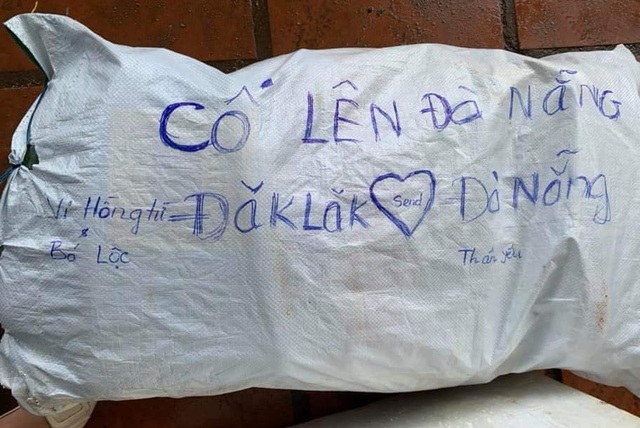 CỐ LÊN ĐÀ NẴNG
Vi Hồng hí = ĐĂKLĂK Send Đà Nẵng
Bố Lộc Thân yêu